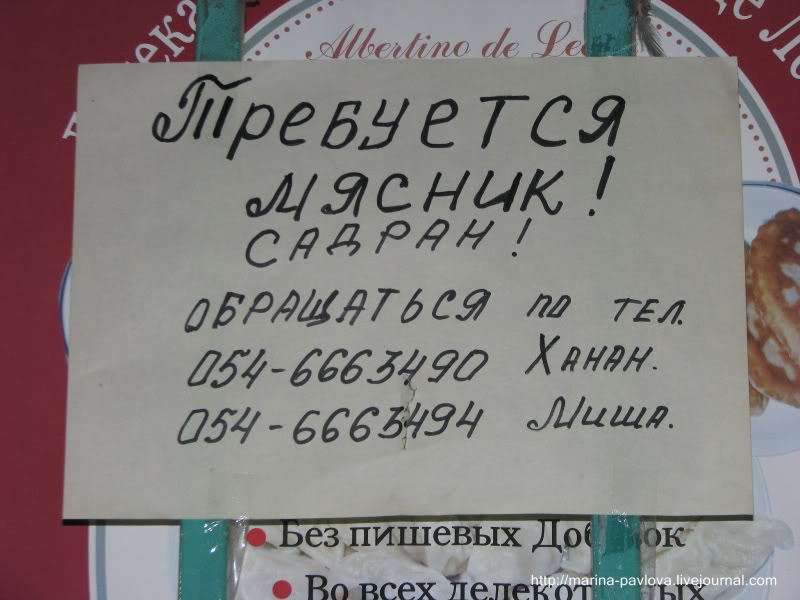 Albertino de Le
Требуется
мясник!
САДРАН!
ОБРАЩАТЬСЯ ПО ТЕЛ.
054-6663490 Ханан.
054-6663494 Миша.
• Без пишевых
• Во всех
http://marina-pavlova.livejournal.com